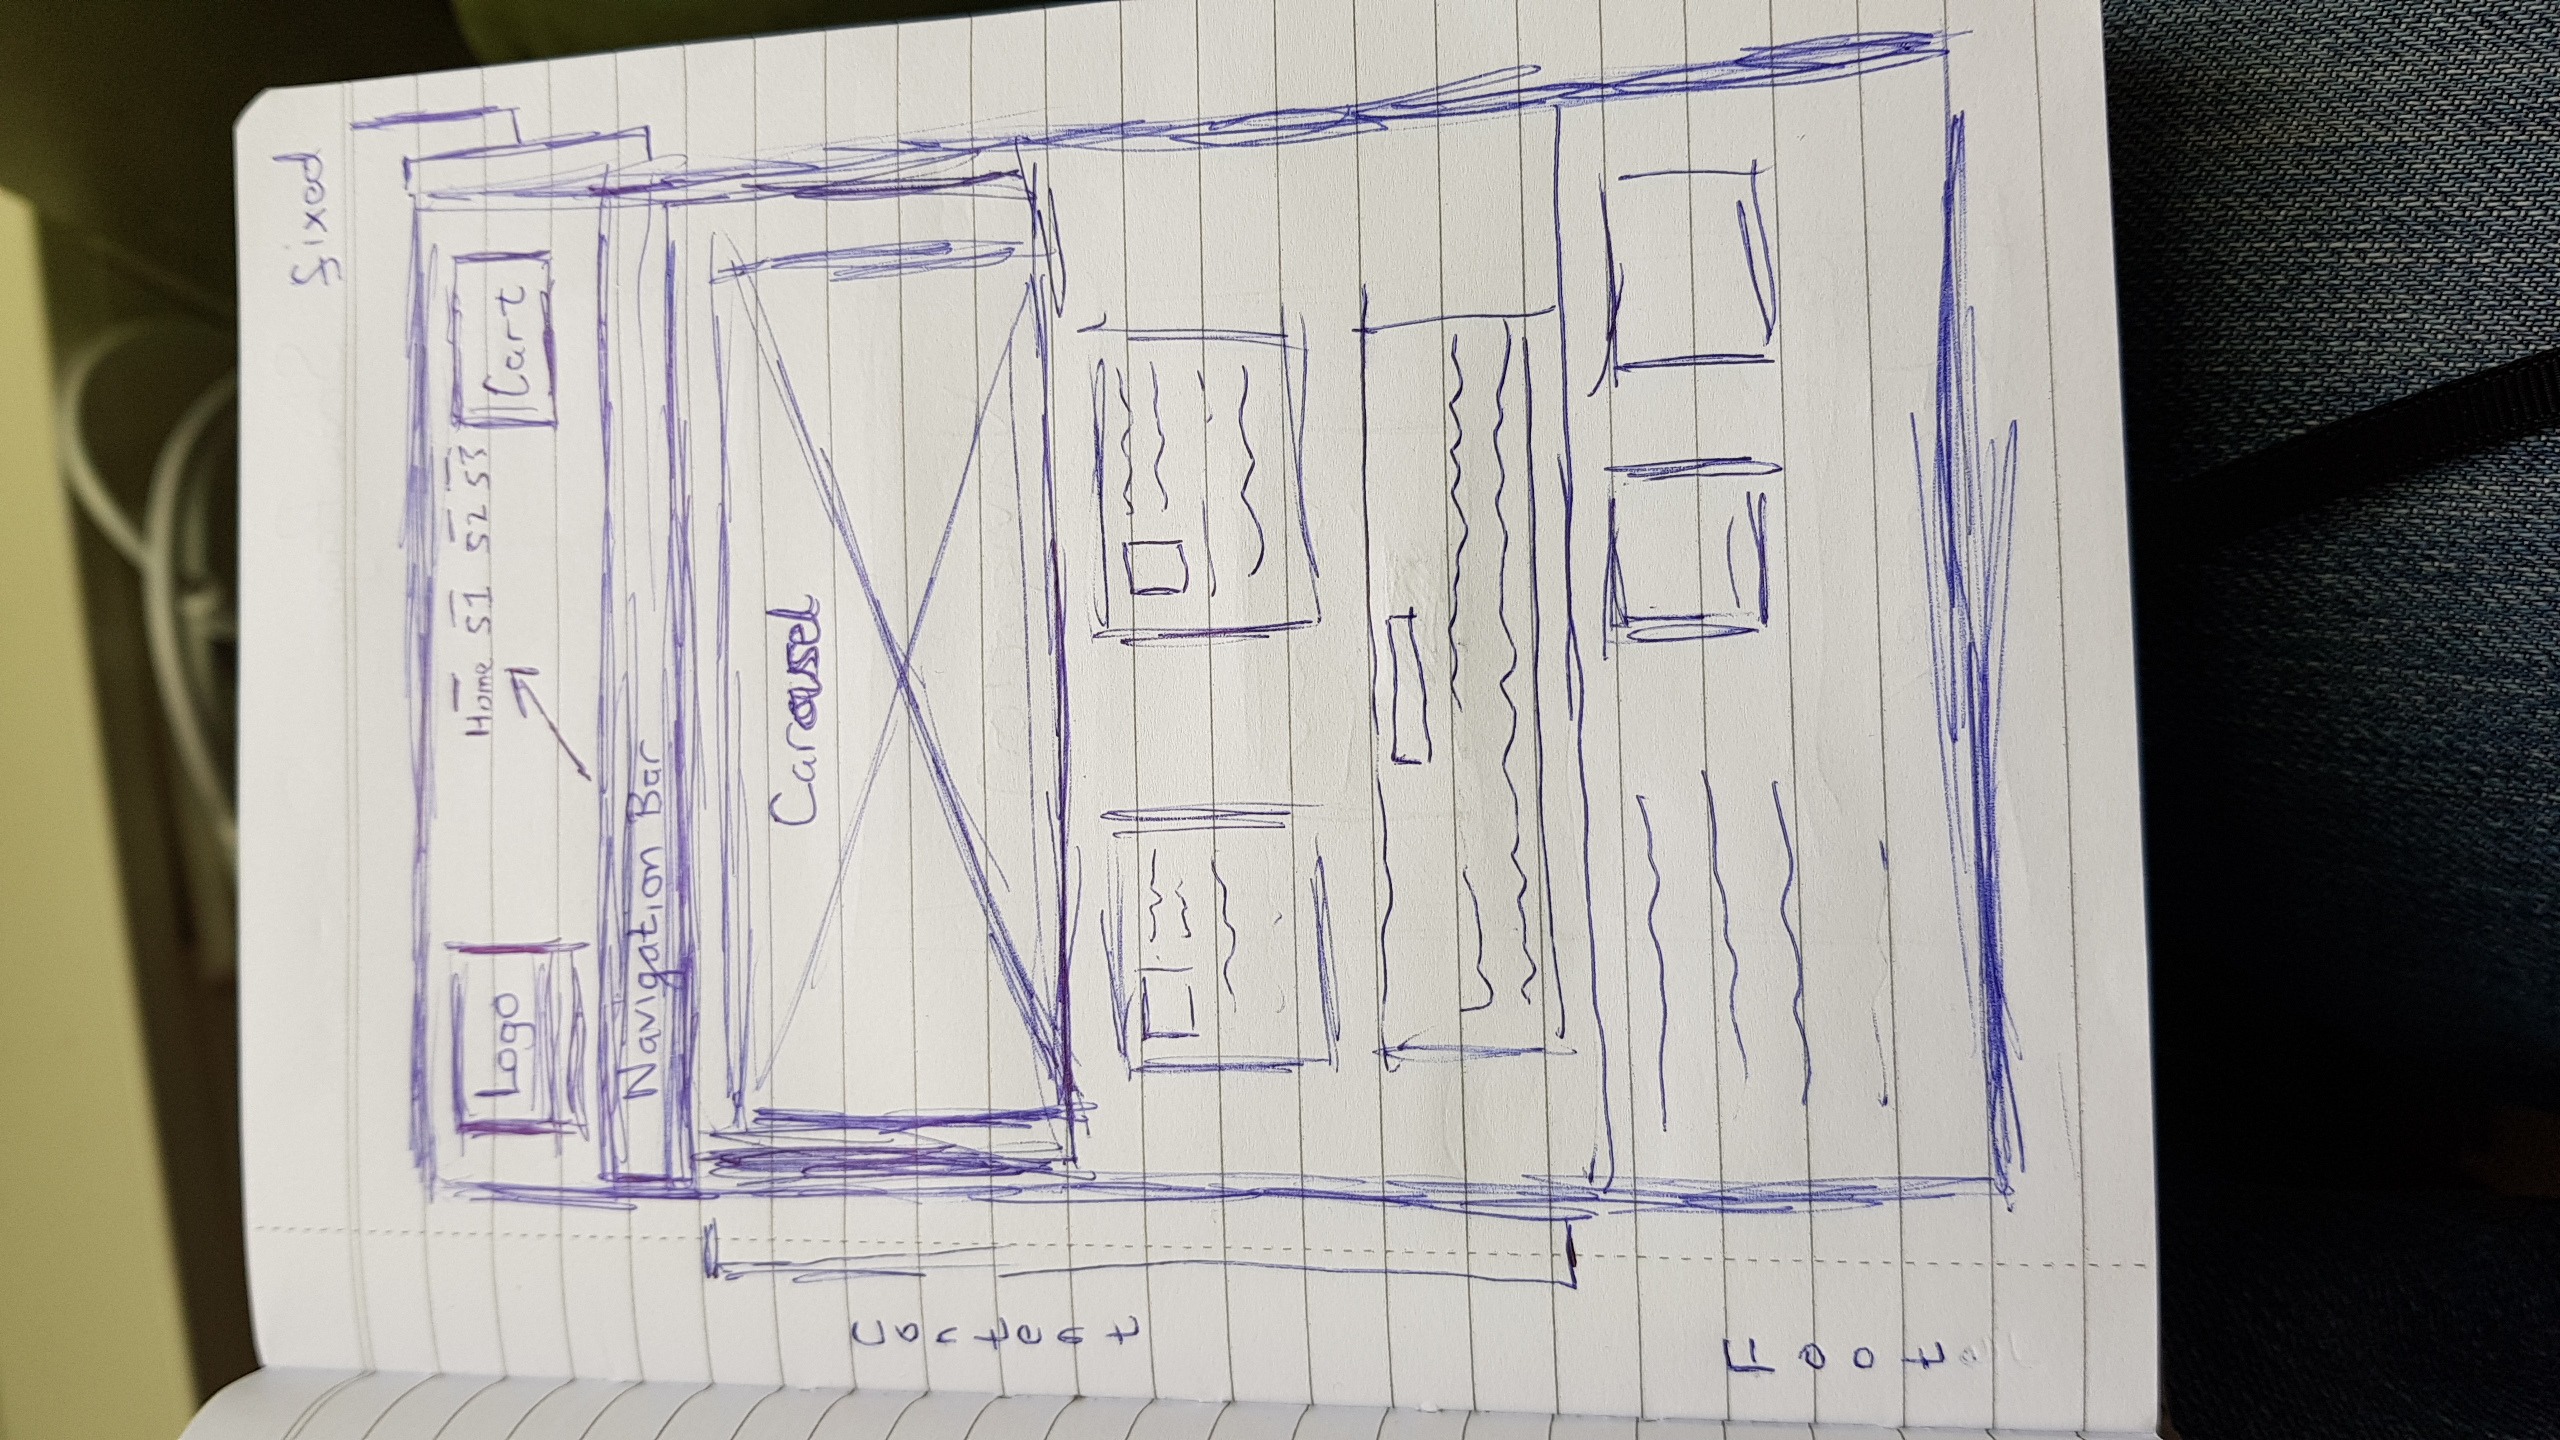 fixed
Logo
Home S1 S2 S3
Cart
Navigation Bar
Carousel
Content
Foot